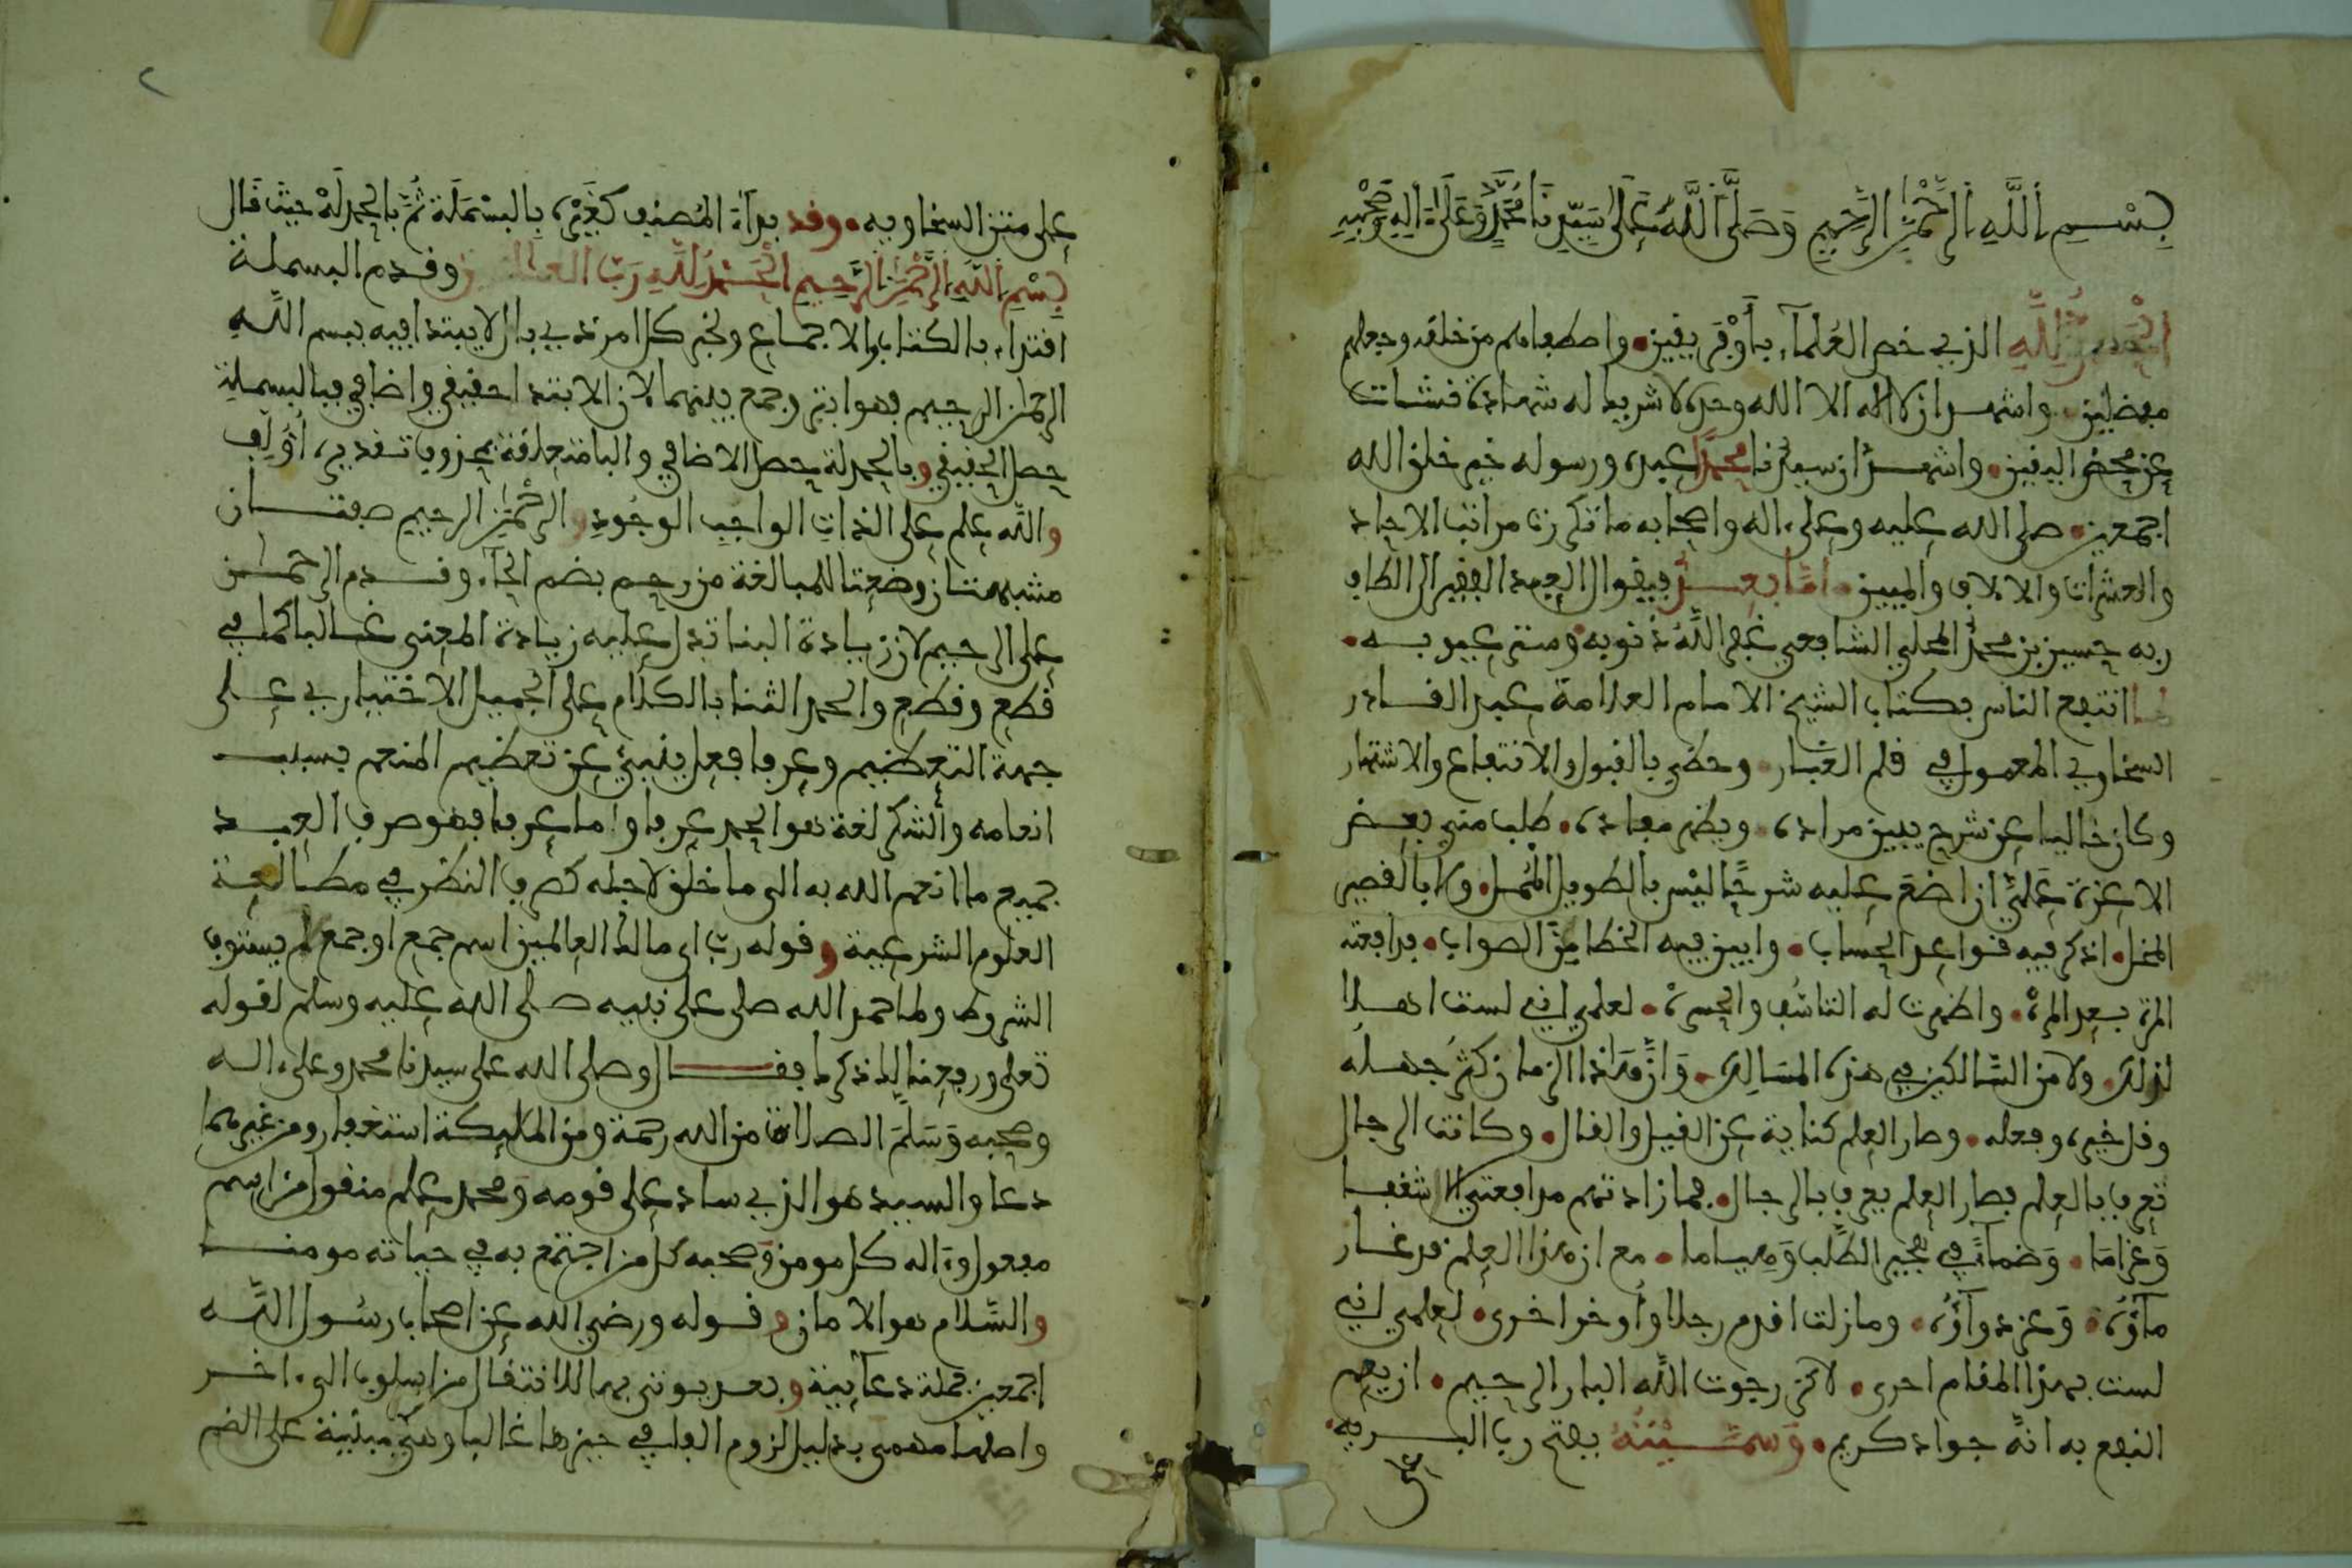 بِسْمِ اللَّهِ الرَّحْمٰنِ الرَّحِيمِ وَصَلَّى اللَّهُ عَلَى سَيِّدِنَا مُحَمَّدٍ وَعَلَىٰ آلِهِ وَصَحْبِهِ
الْحَمْدُ لِلَّهِ الذي خص العُلمآء بأَوْفَرِ يقين • واصطفاهم من خلقه وجعلهم
مفضلين • واشهد ان لا اله الا الله وحده لا شريك له شهادة نشأت
عن محض اليقين • واشهد ان سيدنا محمدًا عبده ورسوله خير خلق الله
اجمعين • صلى الله عليه وعلى ءاله واصحابه ما تكررت مراتب الاحاد
والعشرات والالاف والميين • امَّا بعد فيقول العبد الفقير الى الطاف
ربه حسين بن محمد المحلي الشافعي غفر اللَّهُ ذنوبه وستر عيوبه •
لما انتفع الناس بكتاب الشيخ الامام العلامة عبد القادر
السخاوي المعمول في قلم الغبار • وحظي بالقبول والانتفاع والاشتهار
وكان خاليا عن شرح يبين مراده • ويظهر مفاده • طلب مني بعض
الاعزة عَلَيَّ ان اضعَ عليه شرحًا ليْس بالطويل المُمل • ولا بالقصير
المخل • اذكر فيه قواعد الحساب • وابين فيه الخطا مِنَ الصواب • فدافعته
المرة بعد المرهْ • واظهرت له التاسُف والحسرهْ • لعلمي اني لست اهلا
لذلك • ولا من السَّالكين في هذه المسَالِك • وَانَّ هَذا الزمان كثُر جهله
وقل خيره وفعله • وصار العلم كناية عن القيل والقال • وكانت الرجال
تعرف بالعلم فصار العلم يعرف بالرجال • فما زادتهم مدافعتي الا شغفا
وَغرَامَا • وَضمأً في هجير الطَّلب وَهياما • مع ان هذا العلم قد غار
مآؤُه • وَعز دوآؤُه • وما زلت اقدم رجلا وأُوخر اخرى • لعلمي اني
لست بهذا المقام احرى • لاكن رجوت اللَّه البار الرحيم • ان يعم
النفع به انهَّ جواد كريم • وَسمَّيْتُهُ بفتح رب البريه •
على
٢
على متن السخاويه • وقد بدأَ المُصنف كغَيْره بِالبسْمَلَة ثُمَّ بالحمدلَهْ حيثُ قَال
بِسْمِ اللَّهِ الرَّحْمٰنِ الرَّحِيمِ الْحَمْدُ لِلَّهِ رَبِّ العالمين وقدم البسملة
اقتداء بالكتاب والاجماع ولخبر كل امر ذي بال لا يبتدا فيه ببسم اللَّه
الرحمان الرحيم فهو ابتر وجمع بينهما لان الابتدا حقيقي واضافي فبالبسملة
حصل الحقيقي وبالحمدلة حصل الاضافي والبا متعلقة بمحذوف تقديره أُولِف
والله علم على الذات الواجب الوجُودِ والرحْمٰنِ الرحيم صفتان
مشبهتان وضعتا للمبالغة من رحم بضم الحآء وقدم الرحمان
على الرحيم لان زيادة البنا تدل عليه زيادة المعنى غالبا كما في
قطع وقطّع والحمد الثنا بالكلام على الجميل الاختياري على
جهة التعظيم وعرفا فعل ينبئ عن تعظيم المنعم بسبب
انعامه والشكر لغة هو الحمد عرفا واما عرفا فهو صرف العبد
جميع ما انعم الله به الى ما خلق لاجله كصرف النظر في مطالعة
العلوم الشرعية وقوله رب اي مالك العالمين اسم جمع او جمع لم يستوف
الشروط ولما حمد الله صلى على نبيه صلى الله عليه وسلم لقوله
تعلى ورفعنا لك ذكرك فقال وصلى الله على سيدنا محمد وعلى ءاله
وصحبه وَسَلَّمَ الصلاة من الله رحمة ومن الملايكة استغفار ومن غيرهما
دعا والسيد هو الذي ساد على قومه وَمحمد علم منقول من اسم
مفعول وءاله كل مومن وصحبه كل من اجتمع به في حياته مومنا
والسَّلام هو الامان وقوله ورضي الله عن اصحاب رسُول اللَّه
اجمعين جملة دعآئية وبعد يوتى بها للانتقال من اسلوب الى ءاخر
واصلها مهمى بدليل لزوم الفا في حيزها غالبا وهي مبنية على الضم